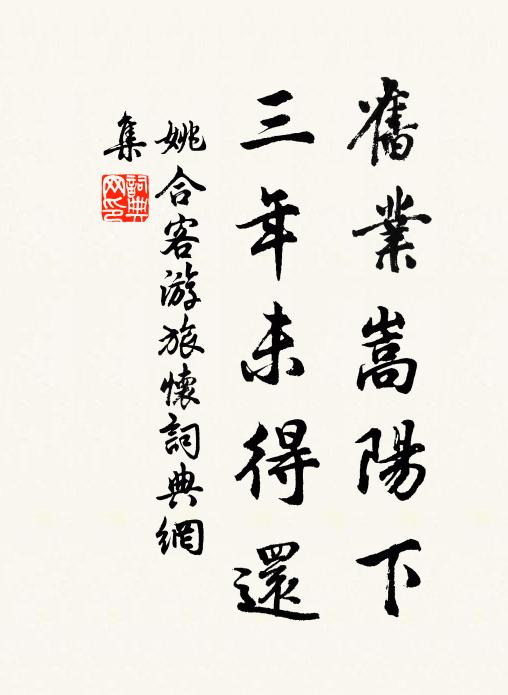 舊業嵩陽下
三年未得還
姚合客游旅懷詞典網
集
詞典網印